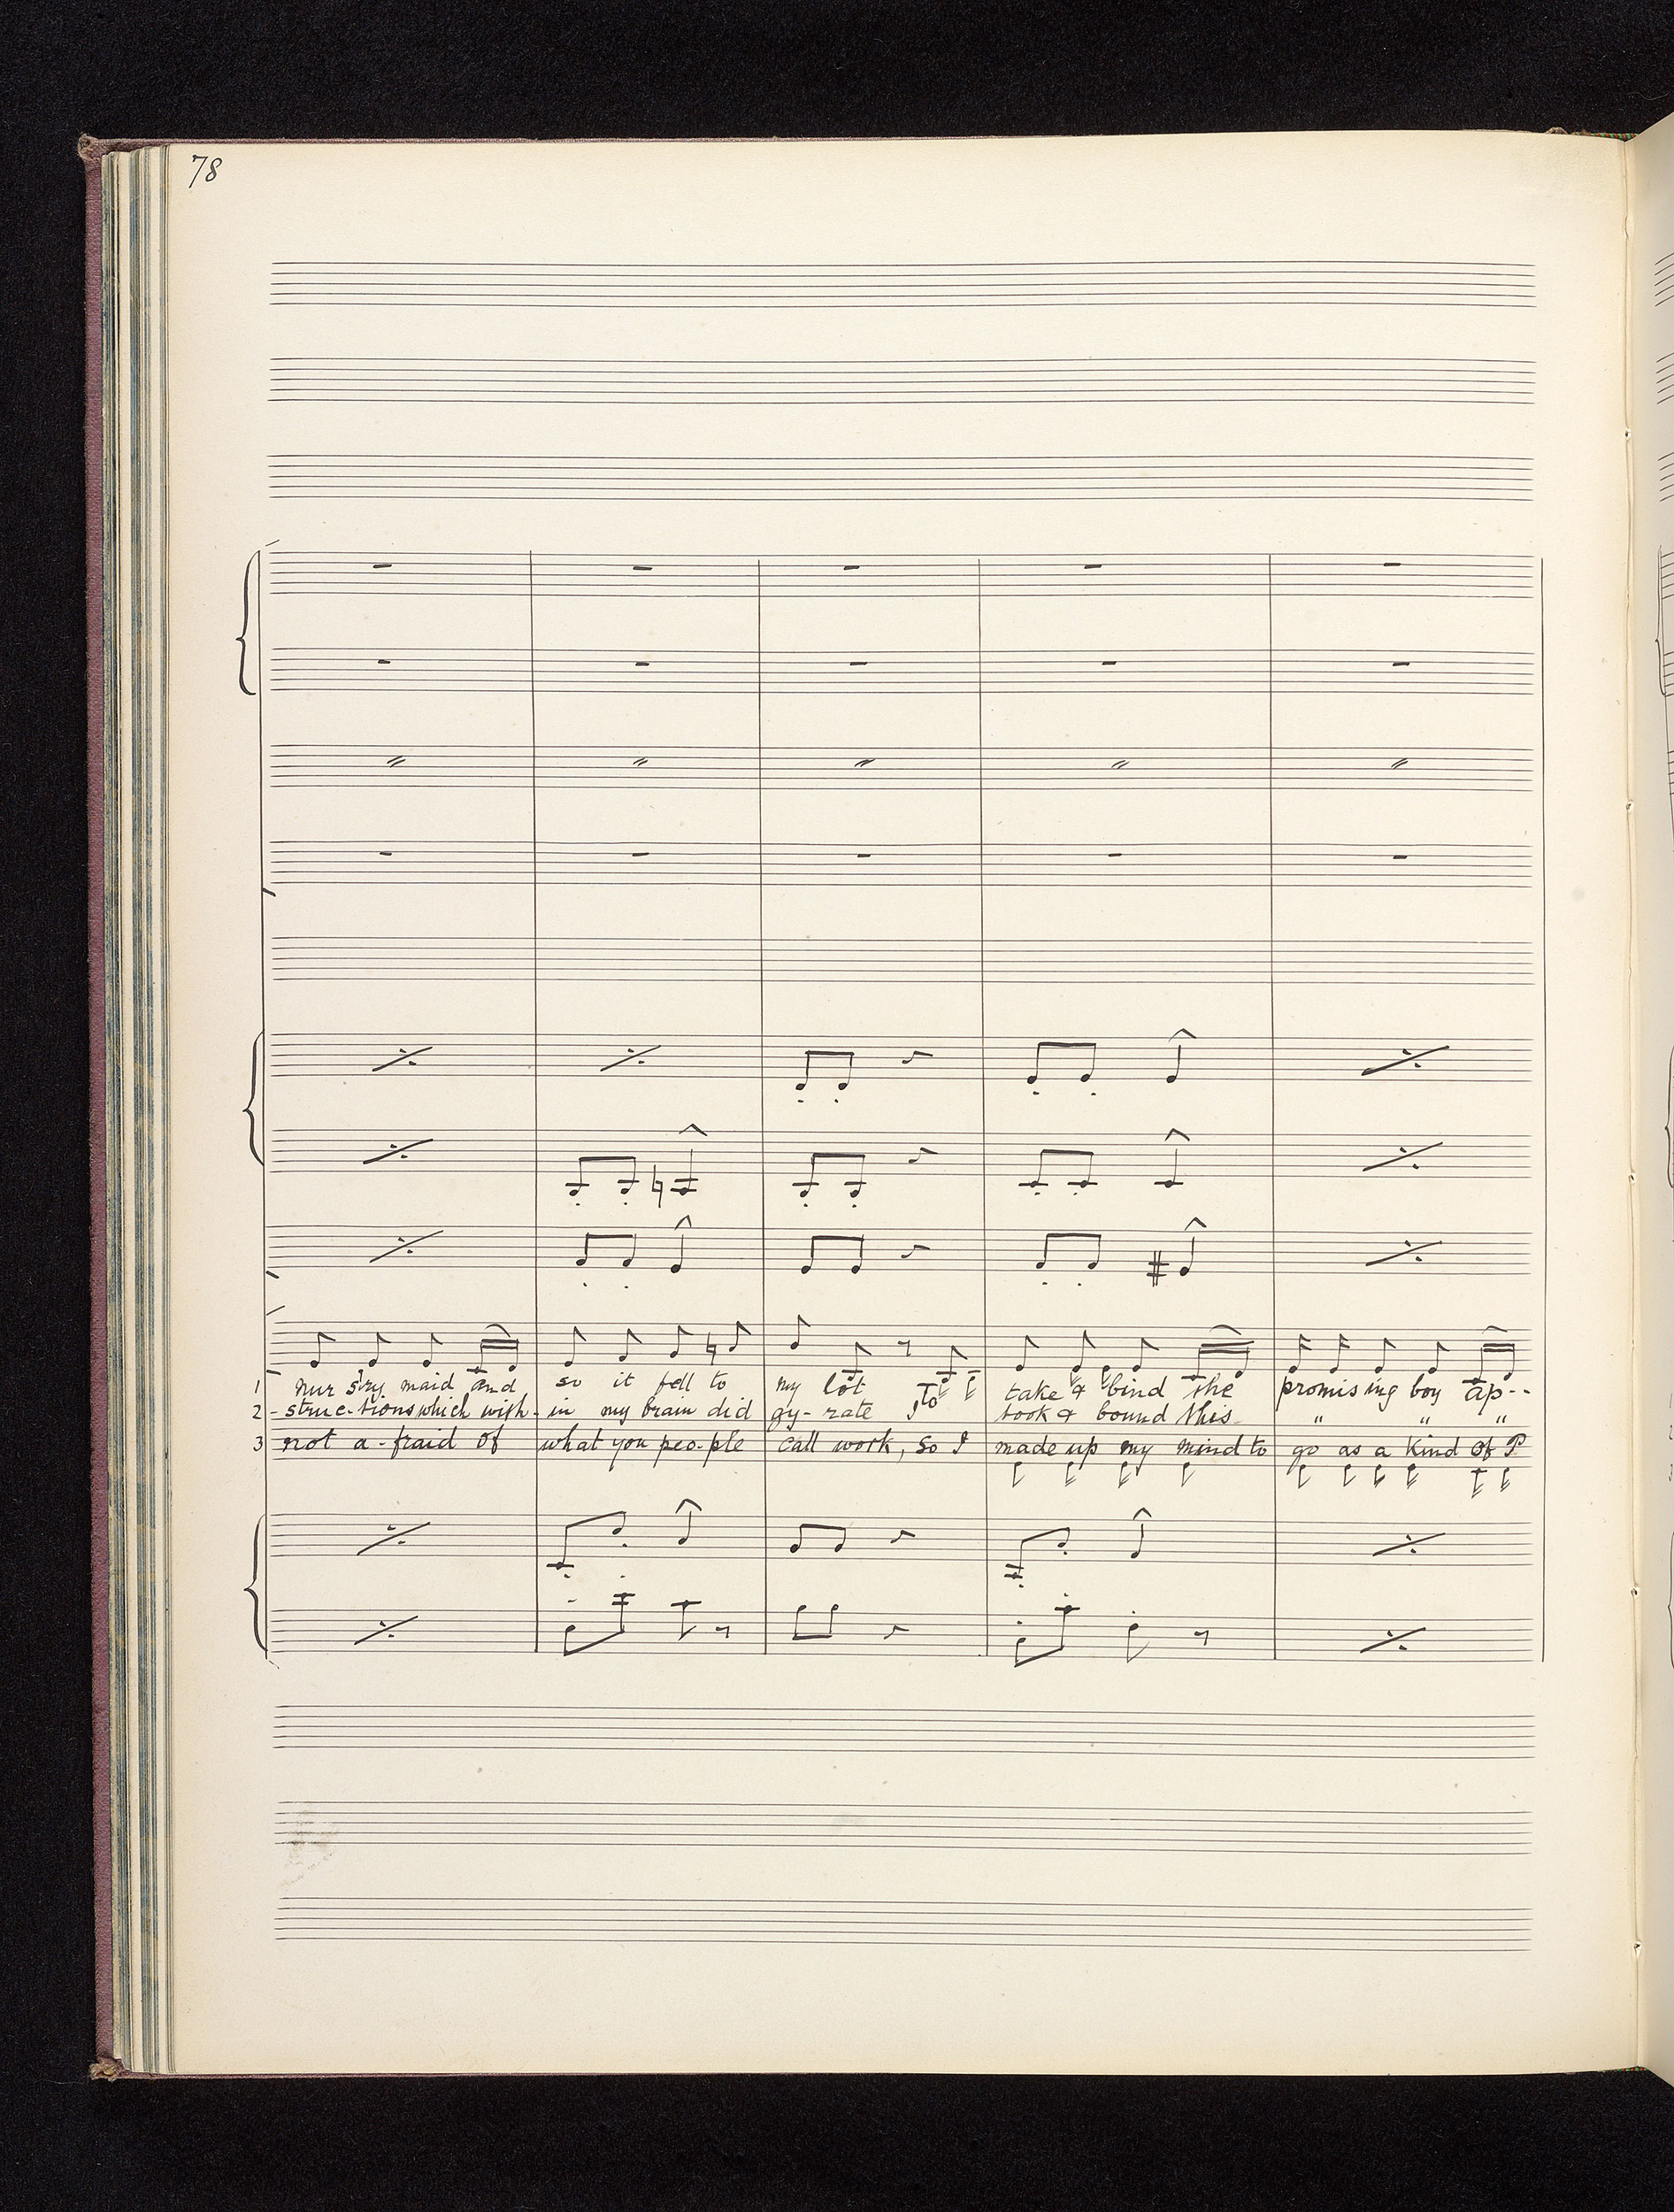 78
1 nur s'ry maid and so it fell to my lot To take & bind the promis ing boy ap--
2 -struc-tions which with-in my brain did gy-rate I took & bound this " " "
3 not a-fraid of what you peo-ple call work, so I made up my mind to go as a kind of P
1
2
3